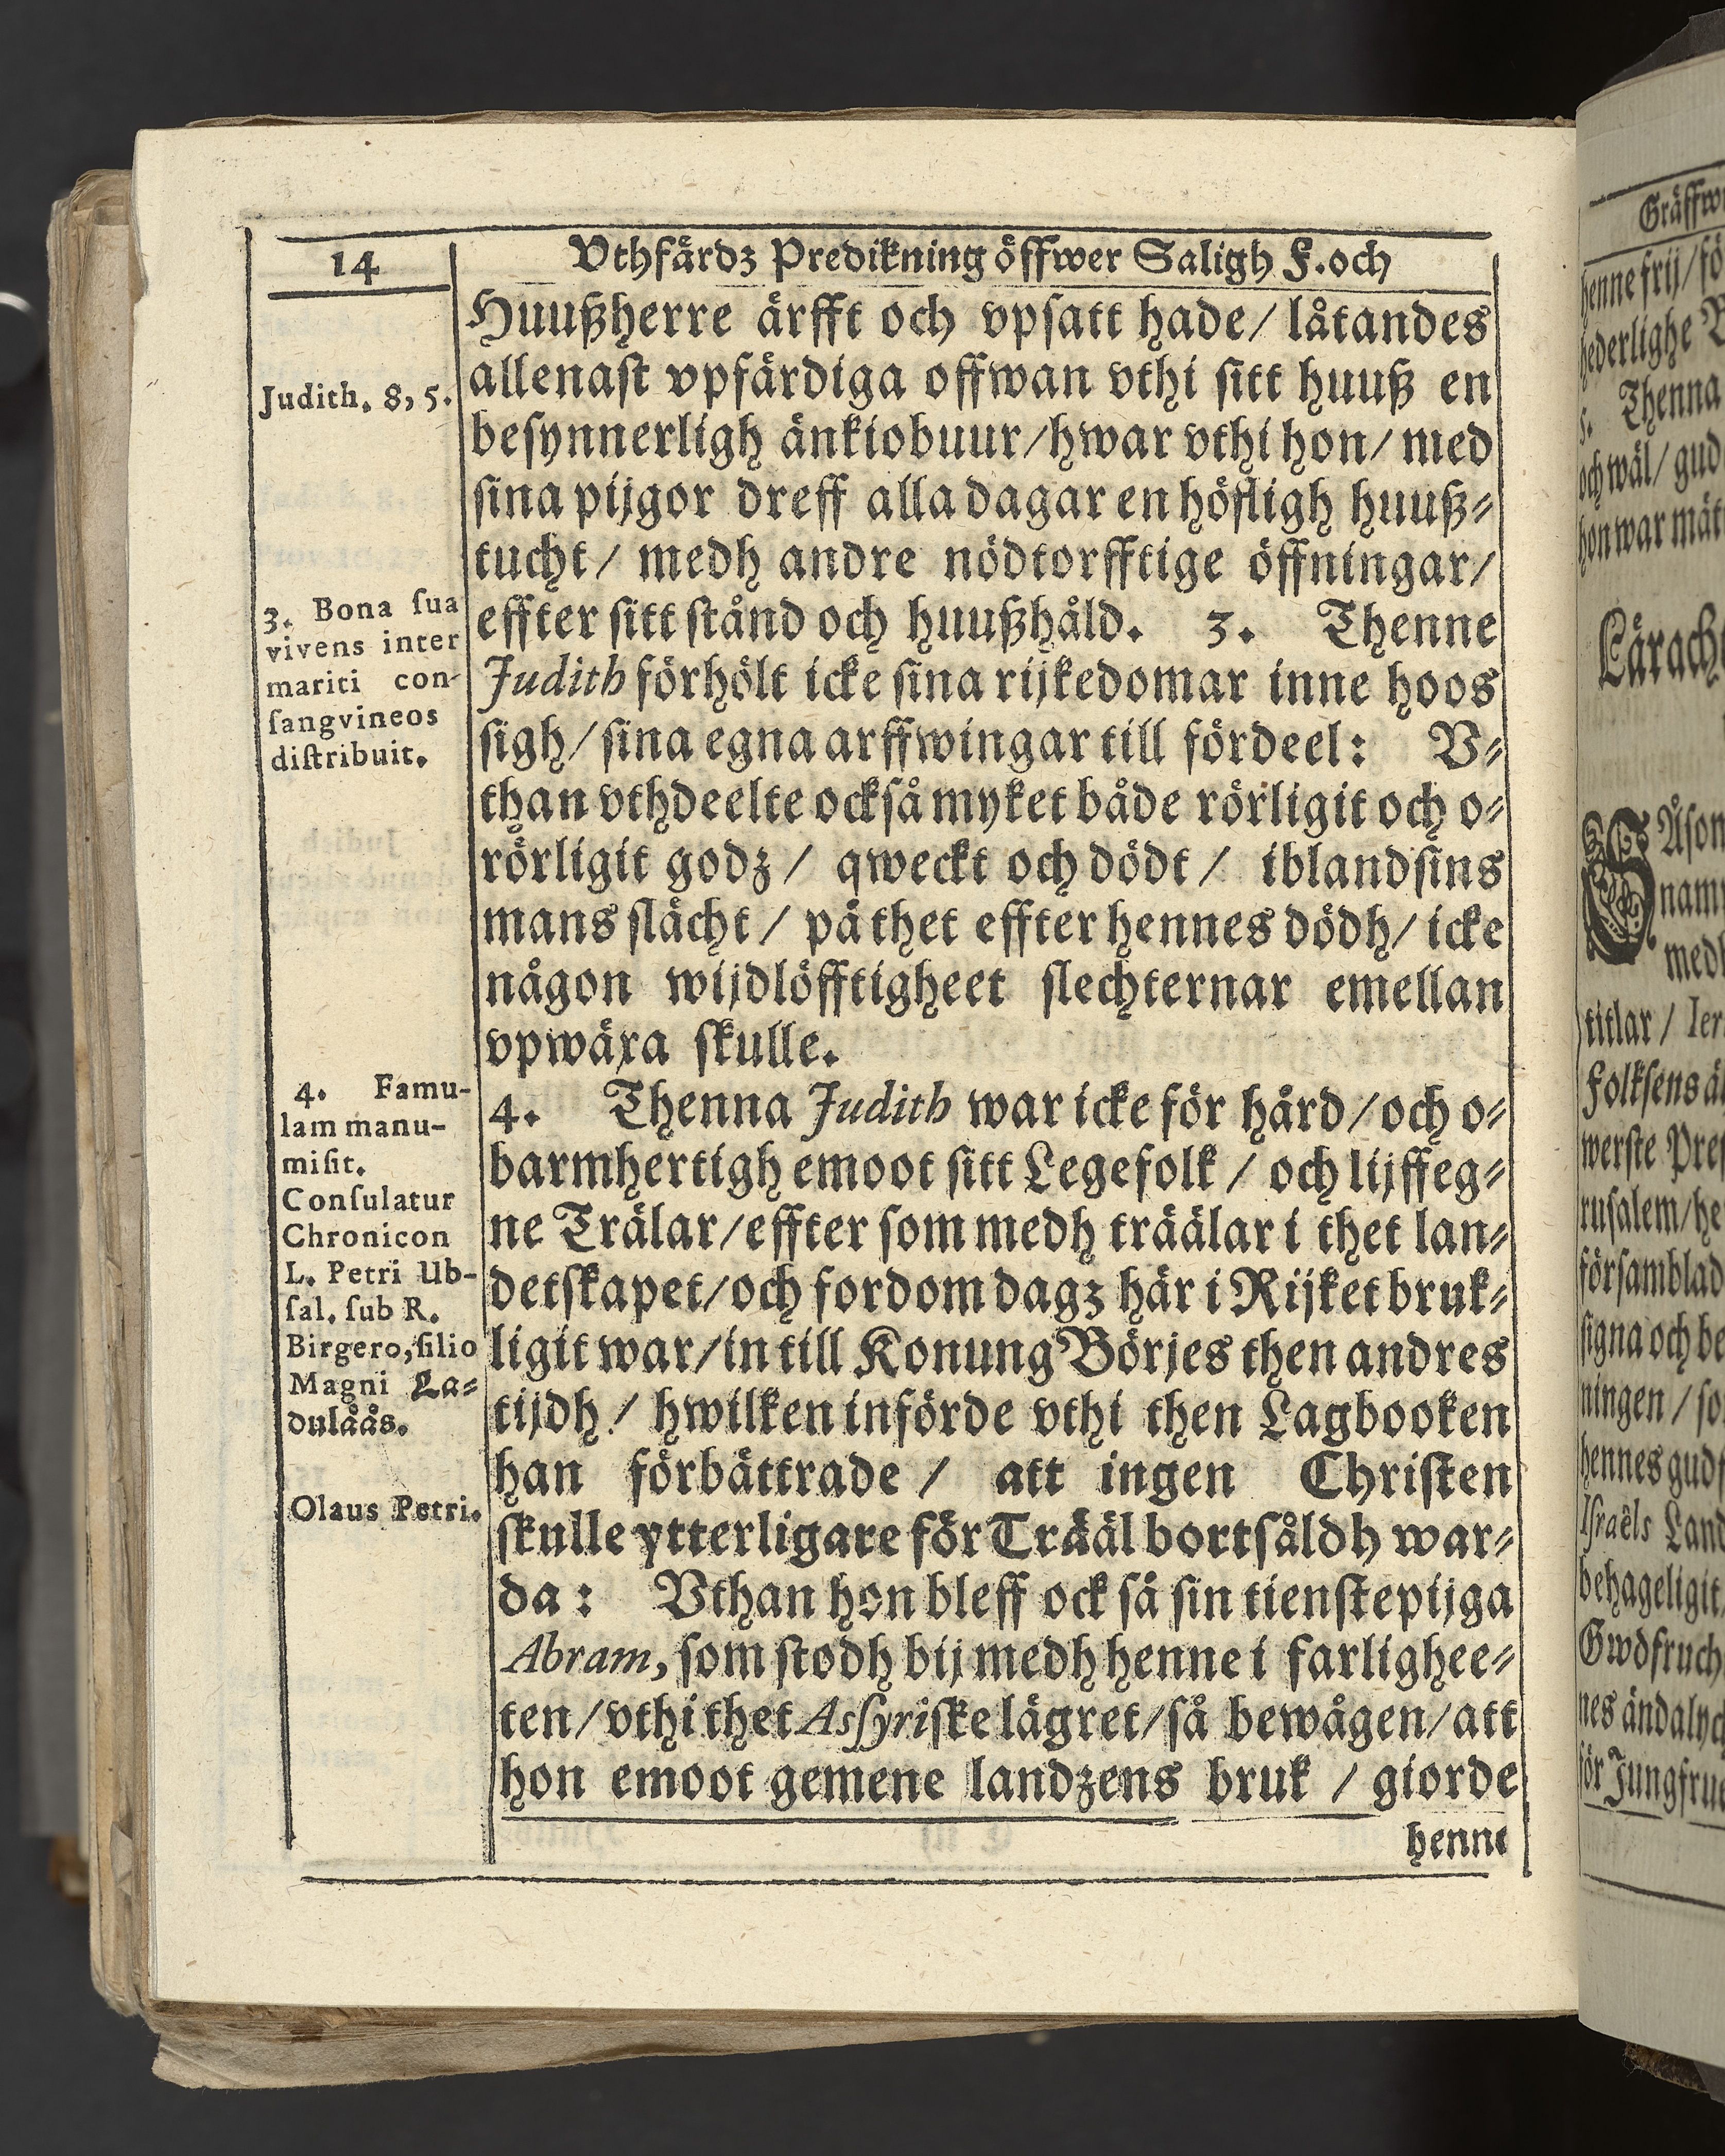 14
Vthfärdz Predikning öffwer Saligh F. och
Huußherre ärfft och vpsatt hade/ låtandes
allenast vpfärdiga offwan vthi sitt huuß en
besynnerligh änkiobuur/hwar vthi hon/ med
sina pijgor dreff alla dagar en höfligh huuß⸗
tucht/ medh andre nödtorfftige öffningar/
effter sitt stånd och huußhåld. 3. Thenne
Judith förhölt icke sina rijkedomar inne hoos
sigh/ sina egna arffwingar till fördeel: V⸗
than vthdeelte ocksåmyket både rörligit och o⸗
rörligit godz / qweckt och dödt / iblandsins
mans slächt / på thet effter hennes dödh/ icke
någon wijdlöfftigheet slechternar emellan
vpwäxa skulle.
4. Thenna Judith war icke för hård/och o⸗
barmhertigh emoot sitt Legefolk / och lijffeg⸗
ne Trälar/effter som medh träälar i thet lan⸗
detskapet/och fordom dagz här i Rijket bruk⸗
ligit war/in till Konung Börjes then andres
tijdh / hwilken införde vthi then Lagbooken
han förbättrade / att ingen Christen
skulle ytterligare för Trääl bortsåldh war⸗
da: Vthan hon bleff ock så sin tienstepijga
Abram, som stodh bij medh henne i farlighee⸗
ten/vthi thet Assyriske lägret/så bewågen/att
hon emoot gemene landzens bruk / giorde
henne
Judith. 8, 5.
3. Bona sua
vivens inter
mariti con-
sangvineos
distribuit.
4. Famu-
lam manu-
misit.
Consulatur
Chronicon
L. Petri Ub-
sal. sub R.
Birgero, filio
Magni La⸗
dulåås.
Olaus Petri.
Gräffw
henne frij/fö
hederlighe
5. Thenna
och wäl/ gud
hon war mät
Lärach
Åson
namn
medh
titlar / Ier
Folksens
werste Pre
rusalem/he
församblad
signa och be
ningen / so
hennes gudf
Israëls Land
behageligit
Gwdfruch
nes ändalyc
för Jungfru